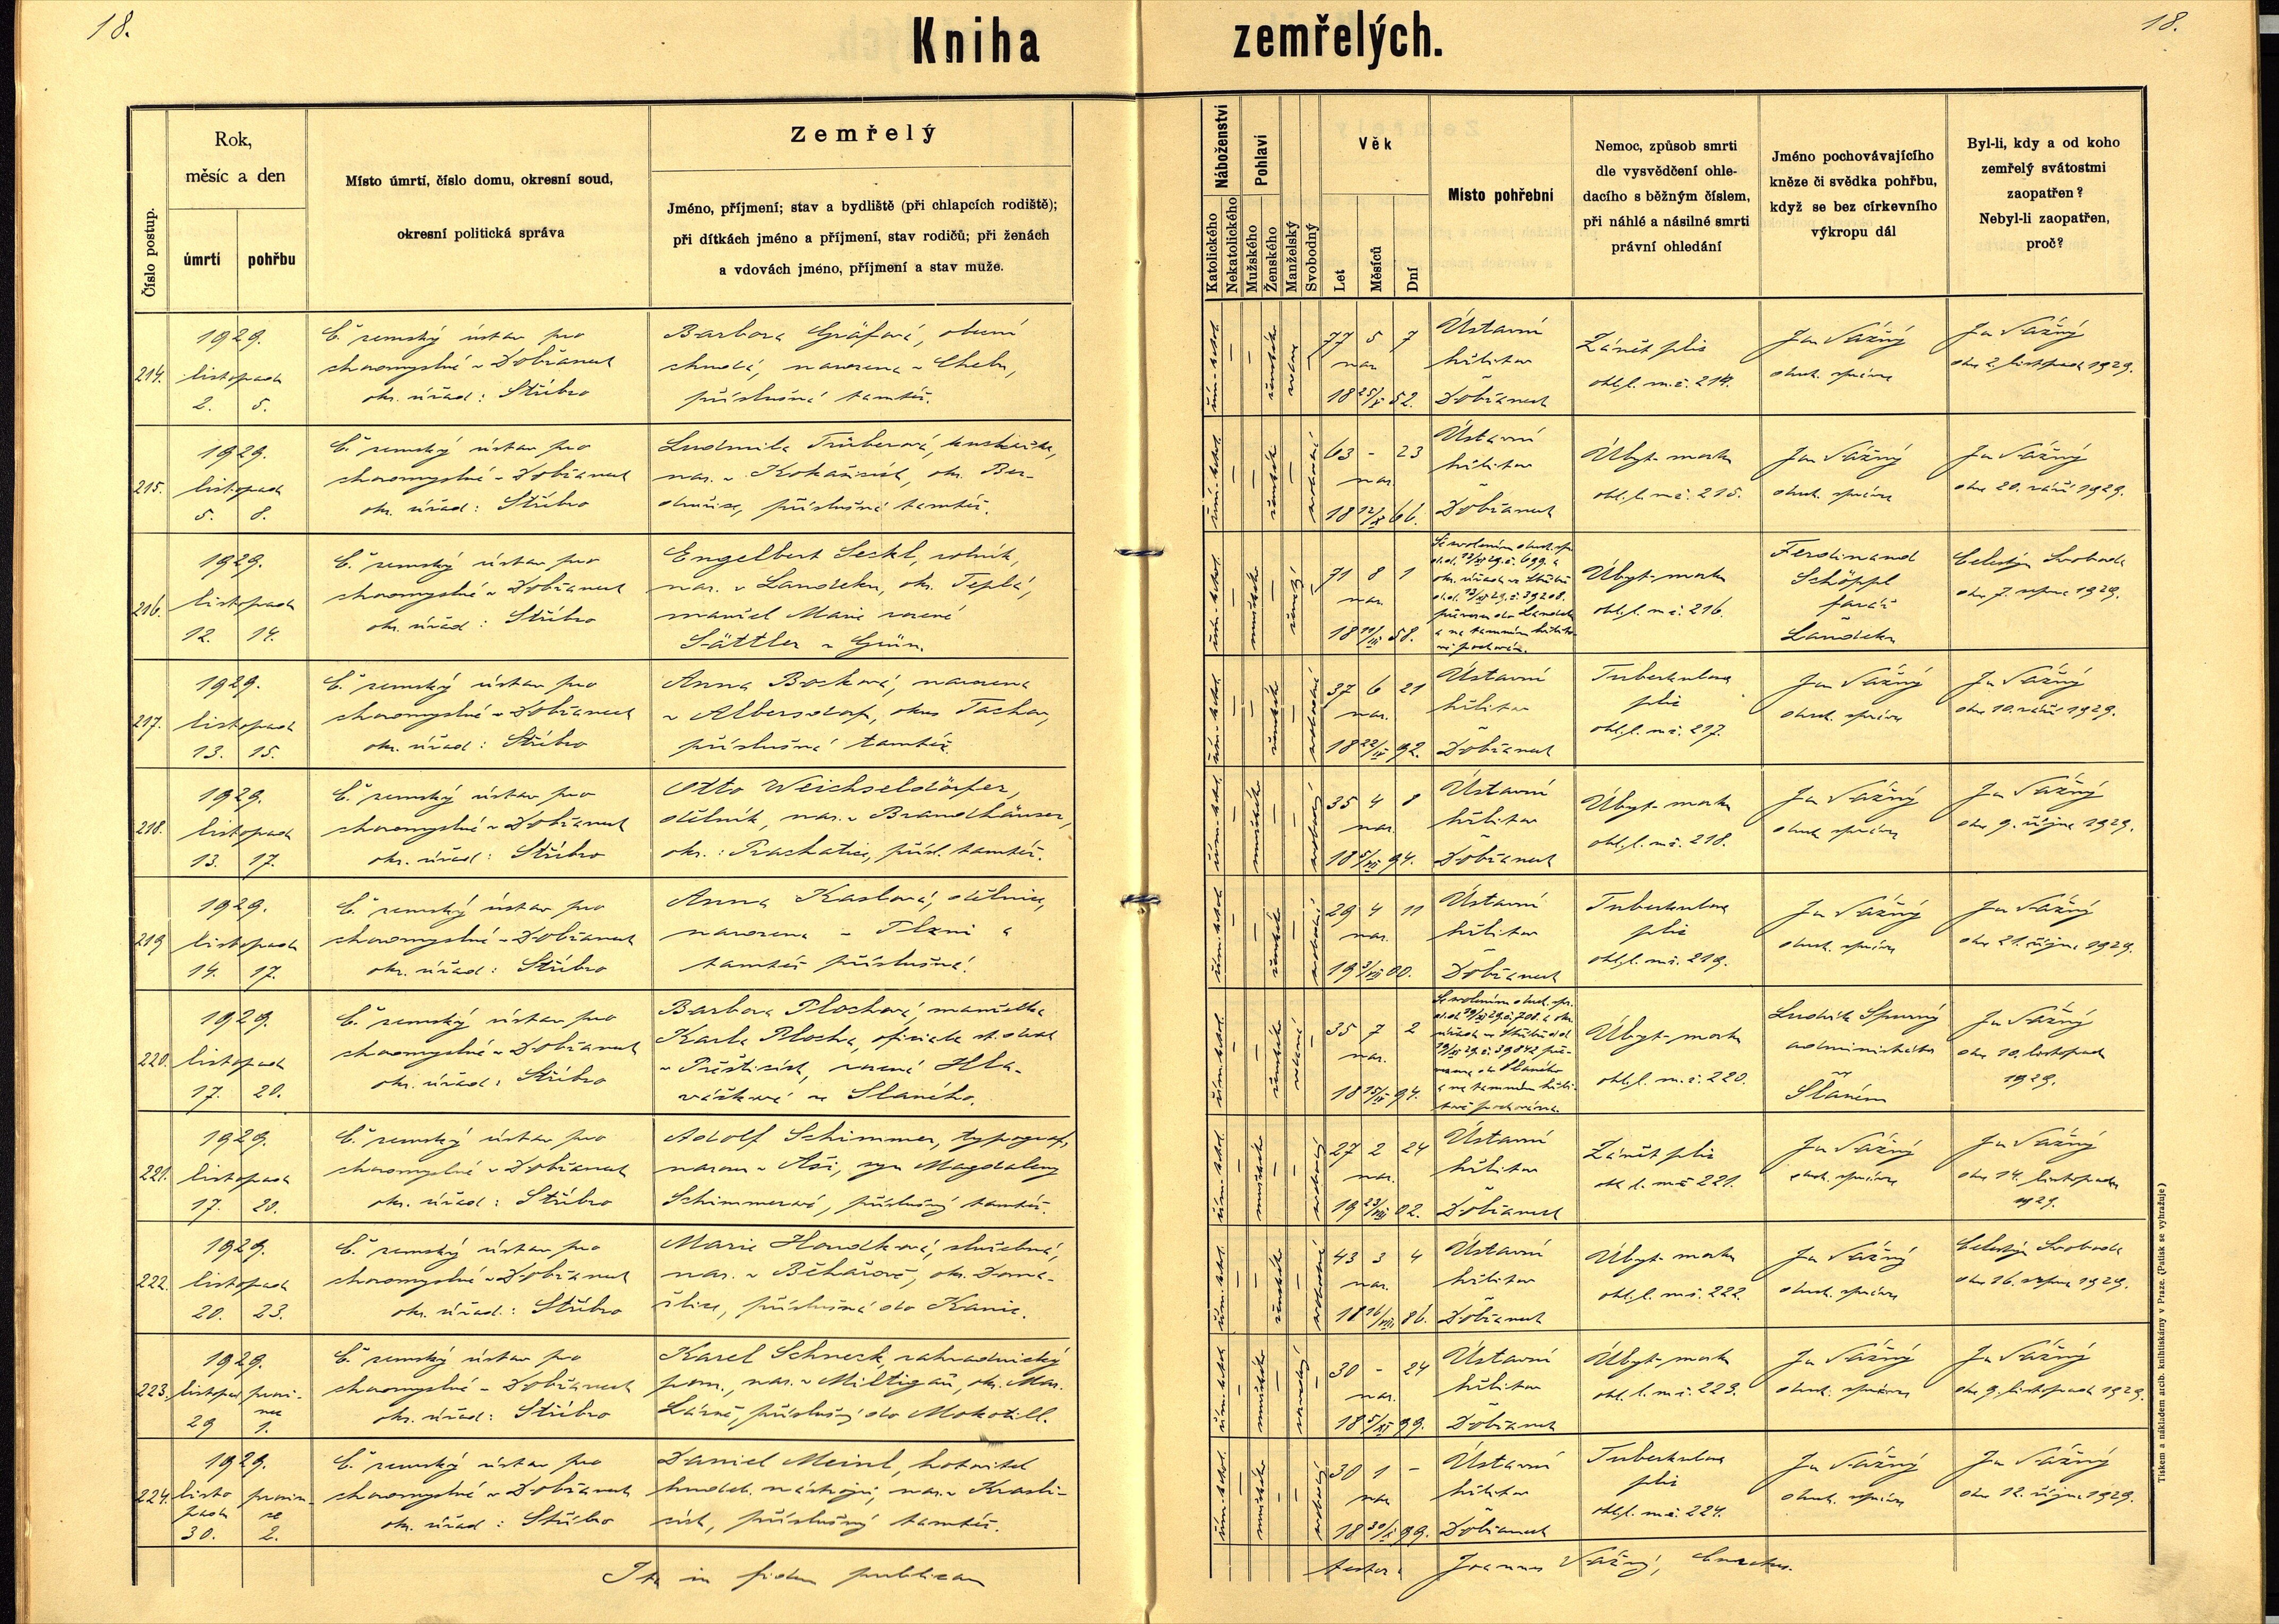 18.
Kniha zemřelých.
18.
Číslo postup.
Rok,
měsíc a den
úmrtí
pohřbu
Místo úmrtí, číslo domu, okresní soud,
okresní politická správa
Zemřelý
Jméno, příjmení; stav a bydliště (při chlapcích rodiště);
při dítkách jméno a příjmení, stav rodičů; při ženách
a vdovách jméno, příjmení a stav muže.
Náboženství
Katolického
Nekatolického
Pohlaví
Mužského
Ženského
Manželský
Svobodný
Věk
Let
Měsíců
Dní
Místo pohřební
Nemoc, způsob smrti
dle vysvědčení ohle-
dacího s běžným číslem,
při náhlé a násilné smrti
právní ohledání
Jméno pochovávajícího
kněze či svědka pohřbu,
když se bez církevního
výkropu dál
Byl-li, kdy a od koho
zemřelý svátostmi
zaopatřen?
Nebyl-li zaopatřen,
proč?
214.
1929.
listopadu
2. 5.
Č. zemský ústav pro
choromyslné v Dobřanech
okr. úřad: Stříbro
Barbora Gräfová, obecní
chudá, narozena v Chebu,
příslušná tamtéž.
řím.-katol.
ženské
vdova
77 5 7
nar.
18 25/V 52.
Ústavní
hřbitov
v Dobřanech
Zánět plic
ohl. l. m. č. 214.
Jan Vážný
duch. správce
Jan Vážný
dne 2. listopadu 1929.
215.
1929.
listopadu
5. 8.
Č. zemský ústav pro
choromyslné v Dobřanech
okr. úřad: Stříbro
Ludmila Trüberová,
příslušná tamtéž.
řím.-katol.
ženské
svobodná
63 - 23
nar.
18 12/X 66.
Ústavní
hřbitov
v Dobřanech
Úbyť mozku
ohl. l. m. č. 215.
Jan Vážný
duch. správce
Jan Vážný
dne 20. září 1929.
216.
1929.
listopadu
12. 14.
Č. zemský ústav pro
choromyslné v Dobřanech
okr. úřad: Stříbro
Engelbert Seckl, rolník,
nar. v Landeku, okr. Teplá,
manžel Marie rozené
Sättler v Grün.
řím.-katol.
mužské
ženatý
71 8 1
nar.
18 11/III 58.
Úbyť mozku
ohl. l. m. č. 216.
Ferdinand
Schöppl
farář
v Landeku
Celestýn Svoboda
dne 7. srpna 1929.
217.
1929.
listopadu
13. 15.
Č. zemský ústav pro
choromyslné v Dobřanech
okr. úřad: Stříbro
Anna Bocková, narozena
v Albersdorf, okres Tachov,
příslušná tamtéž.
řím.-katol.
ženské
svobodná
37 6 21
nar.
18 22/IV 92.
Ústavní
hřbitov
v Dobřanech
Tuberkulosa
plic
ohl. l. m. č. 217.
Jan Vážný
duch. správce
Jan Vážný
dne 10. září 1929.
218.
1929.
listopadu
13. 17.
Č. zemský ústav pro
choromyslné v Dobřanech
okr. úřad: Stříbro
Otto Weichseldörfer,
dělník, nar. v Brandhäuser,
okr.: Prachatice, přísl. tamtéž.
řím.-katol.
mužské
svobodný
35 4 8
nar.
18 5/VII 94.
Ústavní
hřbitov
v Dobřanech
Úbyť mozku
ohl. l. m. č. 218.
Jan Vážný
duch. správce
Jan Vážný
dne 9. října 1929.
219
1929.
listopadu
14. 17.
Č. zemský ústav pro
choromyslné v Dobřanech
okr. úřad: Stříbro
Anna Kaslová, dělnice,
narozena v Plzni a
tamtéž příslušná.
řím.-katol.
ženské
svobodná
29 4 11
nar.
19 3/VII 00.
Ústavní
hřbitov
v Dobřanech
Tuberkulosa
plic
ohl. l. m. č. 219.
Jan Vážný
duch. správce
Jan Vážný
dne 21. října 1929.
220.
1929.
listopadu
17. 20.
Č. zemský ústav pro
choromyslné v Dobřanech
okr. úřad: Stříbro
Barbora Plochová, manželka
Karla Plocha, oficiala st. drah
v Přešticích, rozená Hla-
váčková ze Slaného.
řím.-katol.
ženské
vdaná
35 7 2
nar.
18 15/IV 94.
Úbyť mozku
ohl. l. m. č. 220.
Ludvík Spurný
administrátor
v Slaném
Jan Vážný
dne 10. listopadu
1929.
221.
1929.
listopadu
17. 20.
Č. zemský ústav pro
choromyslné v Dobřanech
okr. úřad: Stříbro
Adolf Schimmer, typograf,
narozen v Aši, syn Magdaleny
Schimmerové, příslušný tamtéž.
řím.-katol.
mužské
svobodný
27 2 24
nar.
19 23/VIII 02.
Ústavní
hřbitov
v Dobřanech
Zánět plic
ohl. l. m. č. 221.
Jan Vážný
duch. správce
Jan Vážný
dne 14. listopadu
1929.
222.
1929.
listopadu
20. 23.
Č. zemský ústav pro
choromyslné v Dobřanech
okr. úřad: Stříbro
Marie Houdková, služebná,
nar. v Běhařově, okr. Doma-
žlice, příslušná do Kanic.
řím.-katol.
ženské
svobodná
43 3 4
nar.
18 16/VIII 86.
Ústavní
hřbitov
v Dobřanech
Úbyť mozku
ohl. l. m. č. 222.
Jan Vážný
duch. správce
Celestýn Svoboda
dne 16. srpna 1929.
223.
1929.
listopad prosi-
nce
29 1.
Č. zemský ústav pro
choromyslné v Dobřanech
okr. úřad: Stříbro
Karel Schneck, zahradnický
pom., nar. v Miltigaü, okr. Mar.
Lázně, příslušný do Mokotill.
řím.-katol.
mužské
30 - 24
nar.
18 5/XI 99.
Ústavní
hřbitov
v Dobřanech
Úbyť mozku
ohl. l. m. č. 223.
Jan Vážný
duch. správce
Jan Vážný
dne 9. listopadu 1929.
224.
1929.
listo prosin-
padu ce
30. 2.
Č. zemský ústav pro
choromyslné v Dobřanech
okr. úřad: Stříbro
Daniel Meinl, hotovitel
hudeb. nástrojů, nar. v Krasli-
cích, příslušný tamtéž.
řím.-katol.
mužské
svobodný
30 1 -
nar.
18 30/X 99.
Ústavní
hřbitov
v Dobřanech
Tuberkulosa
plic
ohl. l. m. č. 224.
Jan Vážný
duch. správce
Jan Vážný
dne 12. října 1929.
Ita in fidem publicam
testor Joannes Vážný, Curatus.
Tiskem a nákladem arcib. knihtiskárny v Praze. (Patisk se vyhražuje)